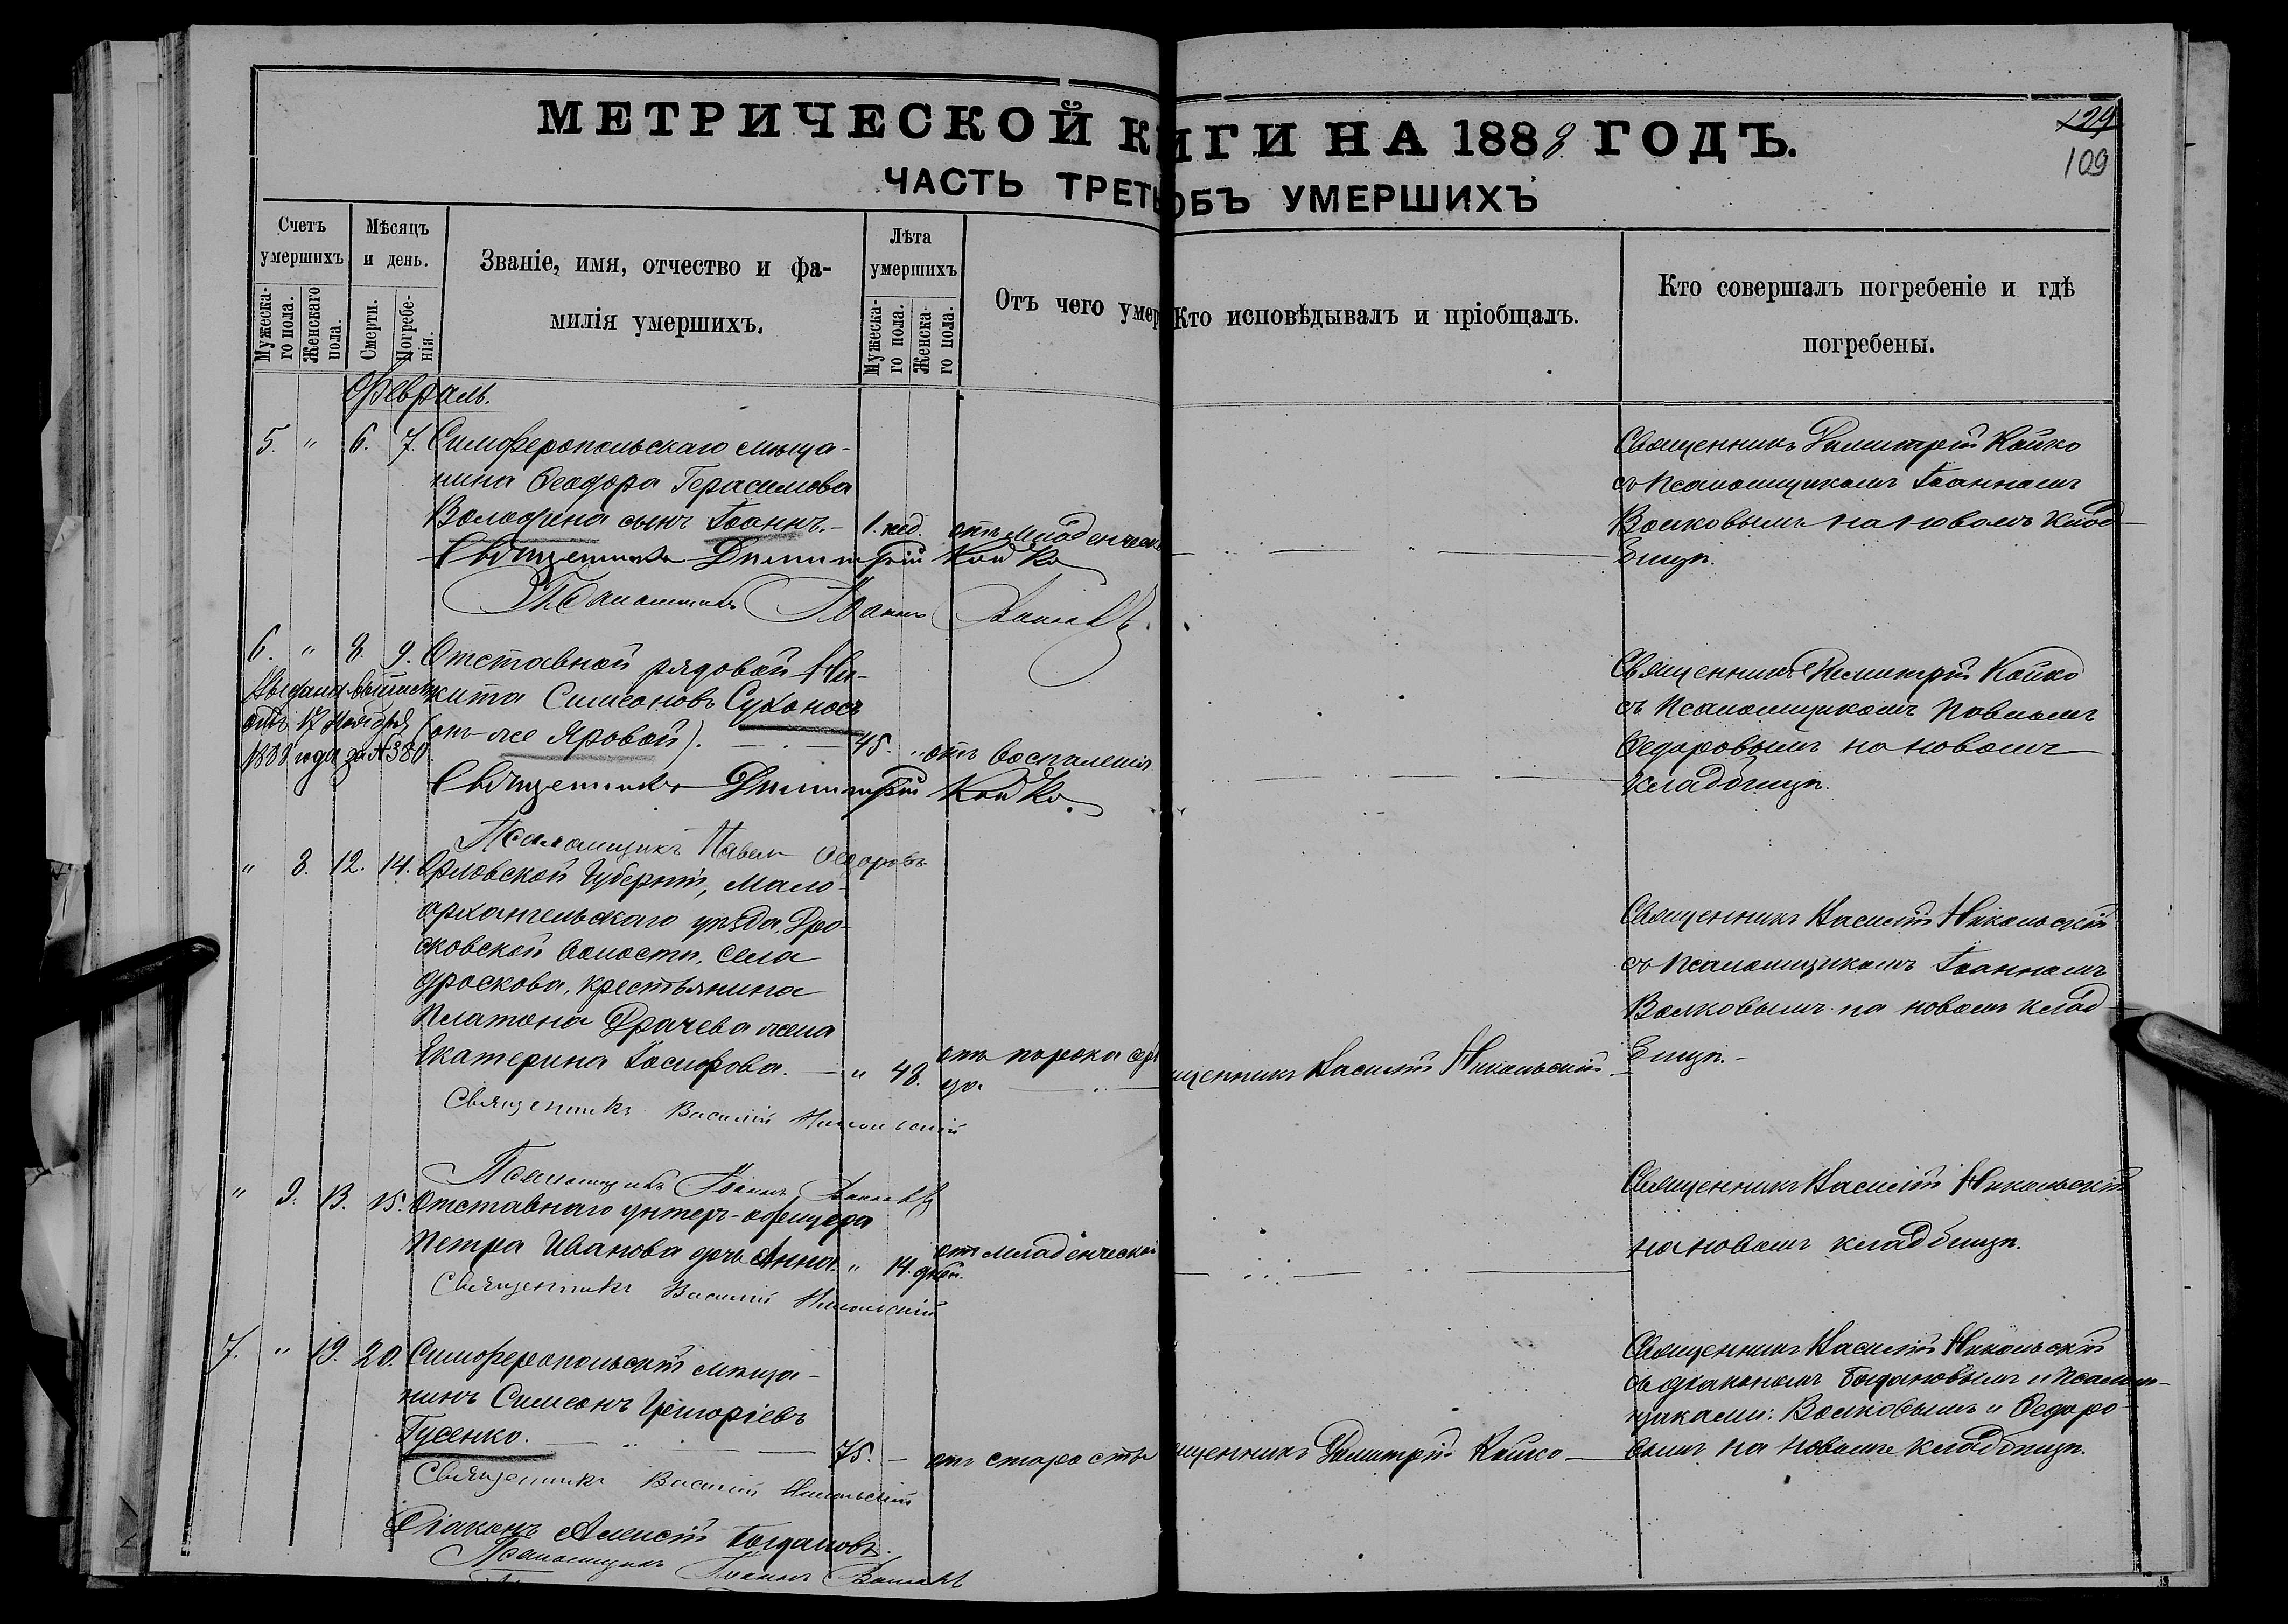 МЕТРИЧЕСКОЙ К
ИГИ НА 1888 ГОДЪ.
129
109
ЧАСТЬ ТРЕТЬ
ОБЪ УМЕРШИХЪ
Счетъ умершихъ
Мужеска-го пола.
Женскаго пола.
Мѣсяцъ и день.
Смерти.
Погребе-нія.
Званіе, имя, отчество и фа-
милія умершихъ.
Лѣта умершихъ
Мужеска-го пола.
Женска-го пола.
Отъ чего умер
Кто исповѣдывалъ и пріобщалъ.
Кто совершалъ погребеніе и гдѣ
погребены.
Февраль.
5. " 6. 7. Симферопольскаго мѣща-
нина Ѳеодора Герасимова
сынъ Іоаннъ. 1. нед. отъ младенческ
Священникъ Димитрій Койко
Псаломщикъ Іоаннъ Волковъ
Священникъ Димитрій Койко
съ Псаломщикомъ Іоанномъ
Волковымъ на новомъ клад-
бищѣ.
6. " 8. 9. Отставной рядовой Ни-
кита Симеоновъ Сухоносъ
(онъ-же Яровой). 45. " отъ воспаленія
Выдана выпись
отъ 17 Ноября
1888 года за № 380.
Священникъ Димитрій Койко.
Псаломщикъ Павелъ Ѳедоровъ
Священникъ Димитрій Койко
съ Псаломщикомъ Павломъ
Ѳедоровымъ на новомъ
кладбищѣ.
" 8. 12. 14. Орловской Губерніи, Мало-
архангельскаго уѣзда, Дро-
сковской волости, села
Дроскова, крестьянина
Платона Драчева жена
Екатерина Іосифова. " 48. отъ порока серд
ца.
Священникъ Василій Никольскій
Псаломщикъ Іоаннъ Волковъ
щенникъ Василій Никольскій.
Священникъ Василій Никольскій
съ Псаломщикомъ Іоанномъ
Волковымъ на новомъ клад-
бищѣ.
" 9. 13. 15. Отставнаго унтеръ-офицера
Петра Иванова дочь Анна. " 14. дней. отъ младенческой
Священникъ Василій Никольскій
Священникъ Василій Никольскій
на новомъ кладбищѣ.
7. " 19. 20. Симферопольскій мѣща-
нинъ Симеонъ Григоріевъ
Гусенко. 75. отъ старости
Священникъ Василій Никольскій
Діаконъ Алексій Богдановъ.
Псаломщикъ Іоаннъ Волковъ
щенникъ Димитрій Койко
Священникъ Василій Никольскій
съ діакономъ Богдановымъ и Псалом-
щиками: Волковымъ и Ѳедоро-
вымъ на новомъ кладбищѣ.